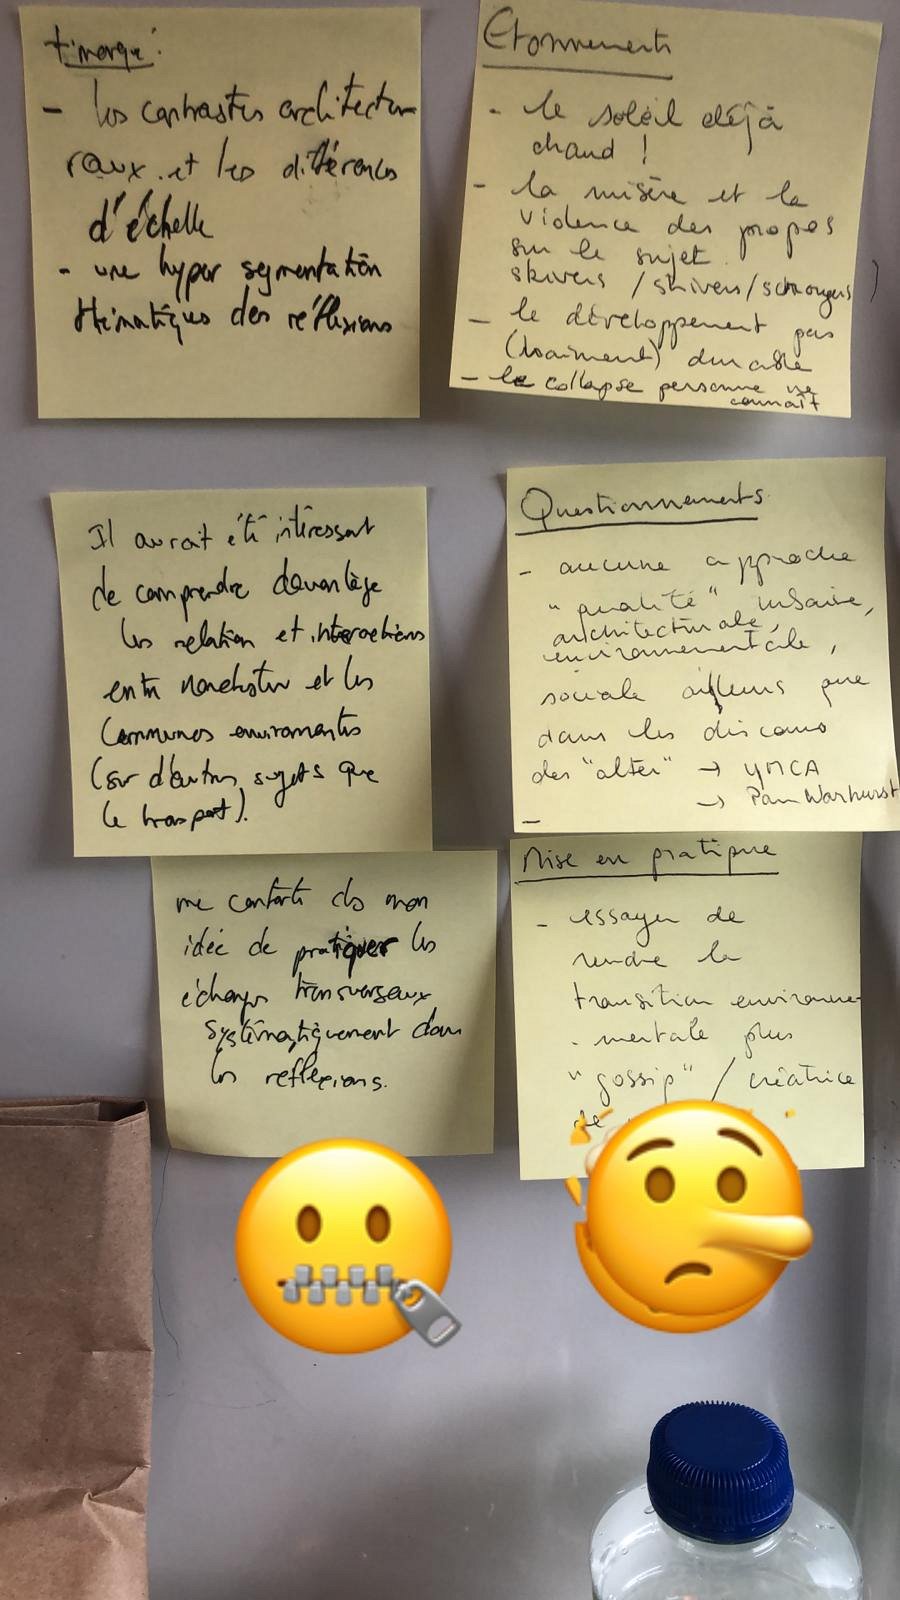 - les contrastes architectu
raux. et les différences
d'échelle
- une hyper segmentation
thématiques des réflexions
Etonnements
- le soleil déjà
chaud !
- la misère et la
violence des propos
sur le sujet.
skivers / shivers /
- le développement pas
(vraiment) durable
- le collapse personne ne
connaît
Il aurait été intéressant
de comprendre davantage
les relation et interactions
entre Manchester et les
Communes environantes
(sur d'autres sujets que
le transport).
Questionnements
- aucune approche
"qualité" urbaine,
architecturale,
environnementale,
sociale ailleurs que
dans les discours
des "alter" → YMCA
→ Pam Warhurst
-
me conforte ds mon
idée de pratiquer les
échanges transversaux
systématiquement dans
les reflexions.
Mise en pratique
- essayer de
rendre la
transition environne-
mentale plus
"gossip" / créatrice
de